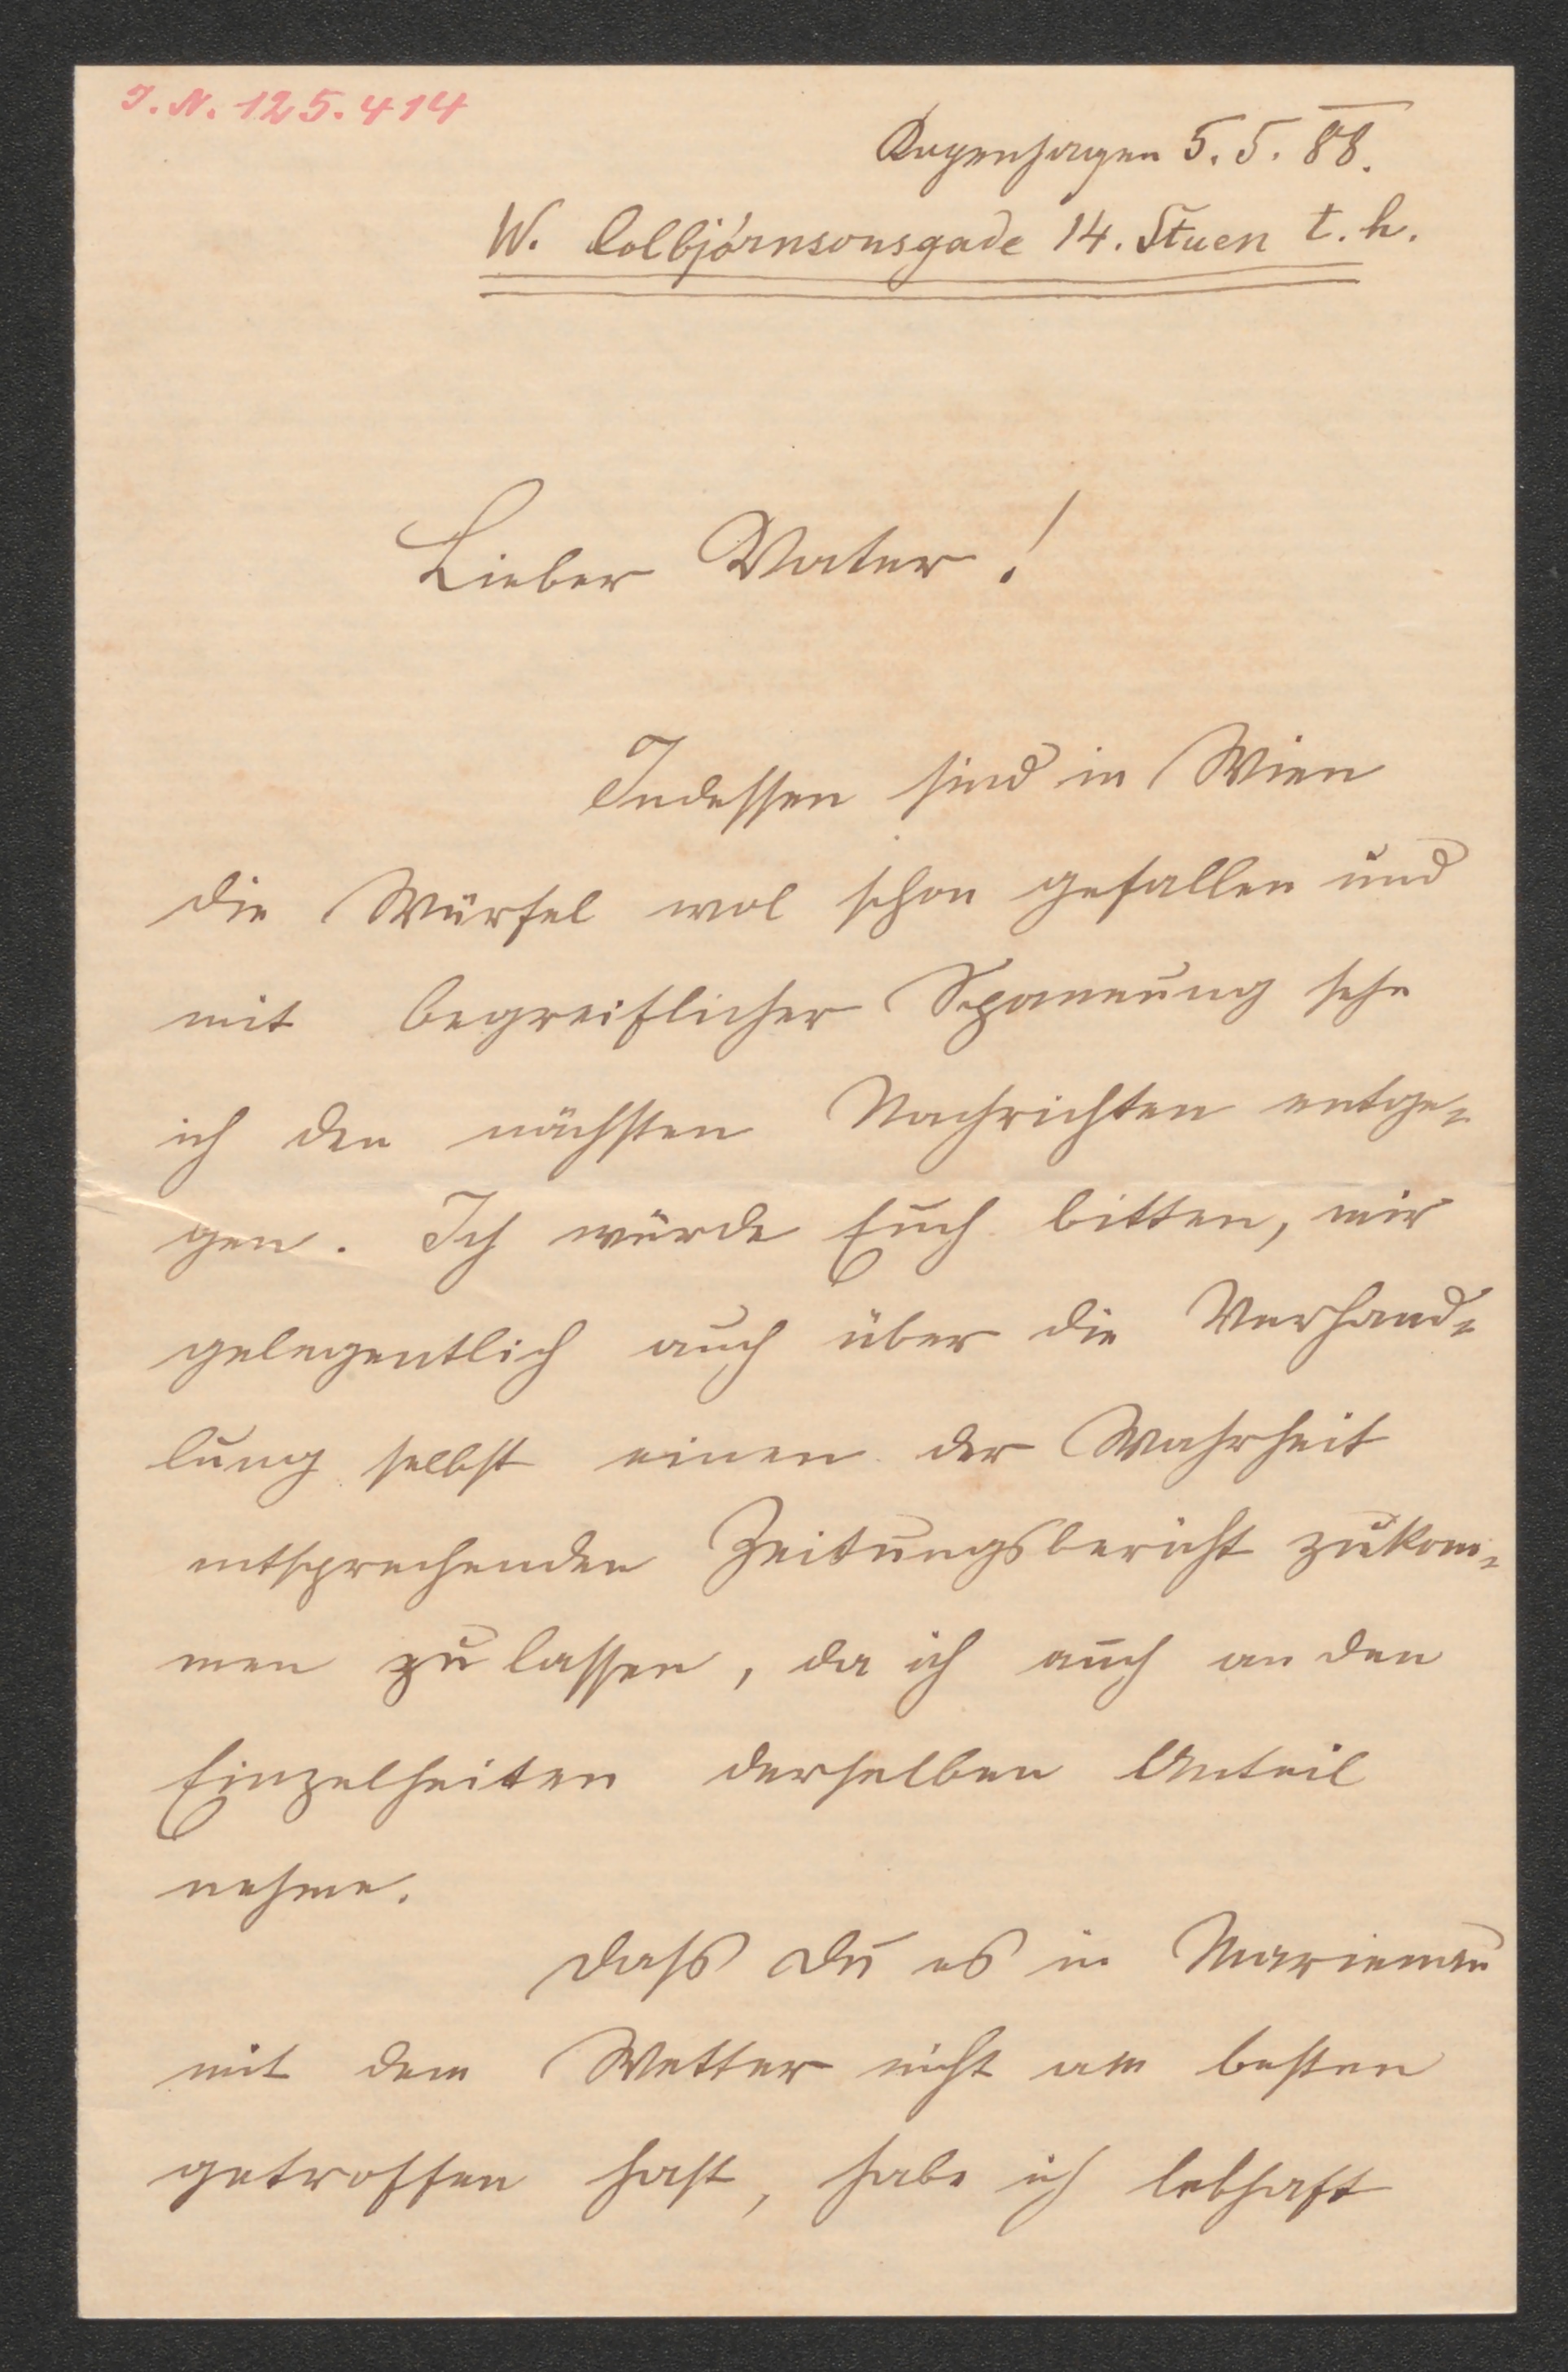 I. N. 125.414
Kopenhagen 5. 5. 88.
W. Colbjörnsonsgade 14. Stuen t. h.
Lieber Vater!
Indessen sind in Wien
die Würfel wol schon gefallen und
mit begreiflicher Spannung sehe
ich den nächsten Nachrichten entge-
gen. Ich würde Euch bitten, mir
gelegentlich auch über die Verhand-
lung selbst einen der Wahrheit
entsprechenden Zeitungsbericht zukom-
men zu lassen, da ich auch an den
Einzelheiten derselben Anteil
nehme.
Dass Du es in Marienau
mit dem Wetter nicht am besten
getroffen hast, habe ich lebhaft